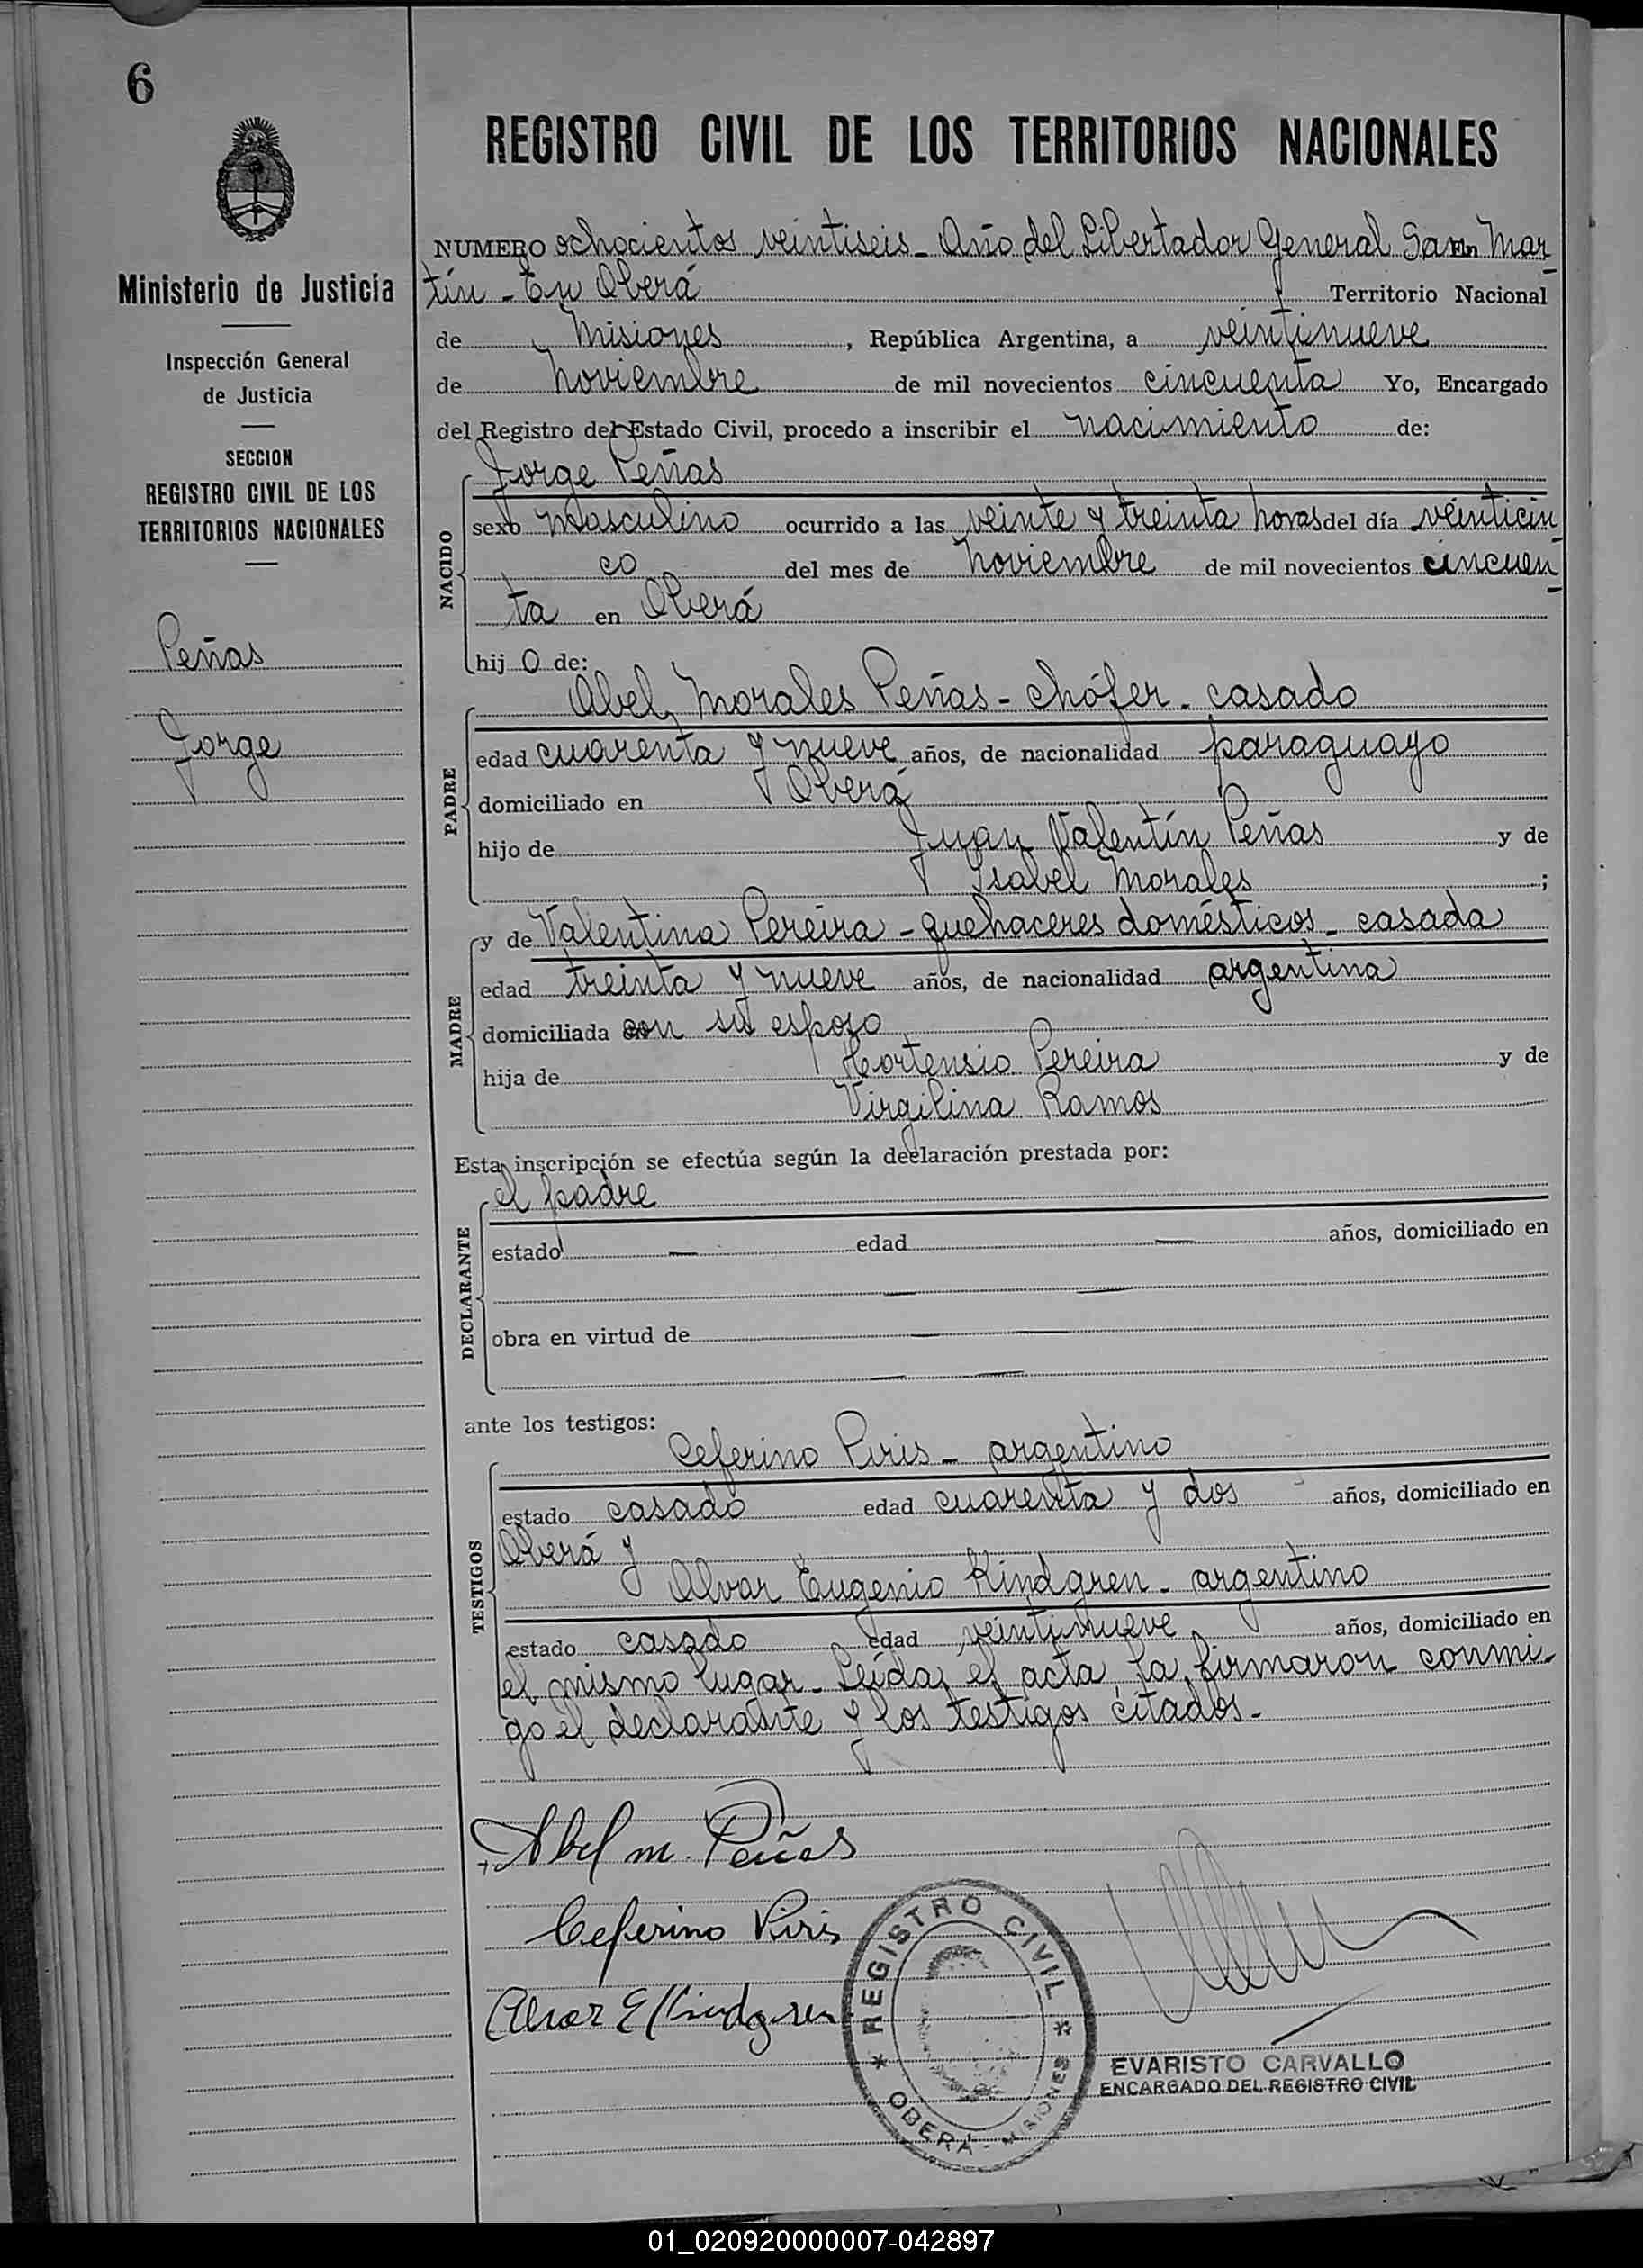 6
Ministerio de Justicia
Inspección General
de Justicia
SECCION
REGISTRO CIVIL DE LOS
TERRITORIOS NACIONALES
Peñas
Jorge
REGISTRO CIVIL DE LOS TERRITORIOS NACIONALES
NUMERO ochocientos veintiseis - Año del Libertador General San Mar
tín - En Oberá Territorio Nacional
de Misiones, República Argentina, a veintinueve
de Noviembre de mil novecientos cincuenta Yo, Encargado
del Registro del Estado Civil, procedo a inscribir el nacimiento de:
NACIDO
Jorge Peñas
sexo masculino ocurrido a las veinte y treinta horas del día veinticin
co del mes de Noviembre de mil novecientos cincuen
ta en Oberá
hij o de:
PADRE
Abel Morales Peñas - chófer - casado
edad cuarenta y nueve años, de nacionalidad paraguayo
domiciliado en Oberá
hijo de Juan Valentín Peñas y de
Isabel Morales ;
MADRE
y de Valentina Pereira - quehaceres domésticos - casada
edad treinta y nueve años, de nacionalidad argentina
domiciliada con su esposo
hija de Hortensio Pereira y de
Virgilina Ramos
Esta inscripción se efectúa según la declaración prestada por:
DECLARANTE
el padre
estado — edad — años, domiciliado en
— —
obra en virtud de — —
— —
ante los testigos:
TESTIGOS
Ceferino Piris - argentino
estado casado edad cuarenta y dos años, domiciliado en
Oberá y
Alvar Eugenio Kindgren - argentino
estado casado edad veintinueve años, domiciliado en
el mismo lugar - Leída el acta, la firmaron conmi-
go el declarante y los testigos citados -
Abel M. Peñas
Ceferino Piris
Alvar E Kindgren
* REGISTRO CIVIL *
OBERÁ - MISIONES
EVARISTO CARVALLO
ENCARGADO DEL REGISTRO CIVIL
01_020920000007-042897